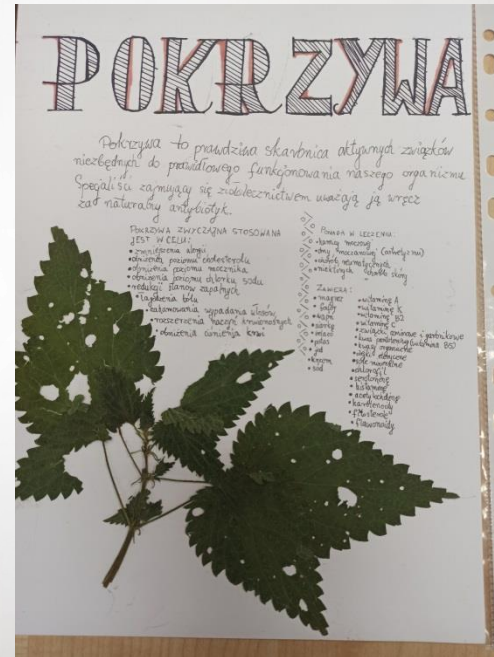 POKRZYWA
Pokrzywa to prawdziwa skarbnica aktywnych związków
niezbędnych do prawidłowego funkcjonowania naszego organizmu
Specjaliści zajmujący się ziołolecznictwem uważają ją wręcz
za naturalny antybiotyk.
POKRZYWA ZWYCZAJNA STOSOWANA
JEST W CELU:
• zmniejszenia alergii
• obniżenia poziomu cholesterolu
• obniżenia poziomu mocznika
• obniżenia poziomu chlorku sodu
• redukcji stanów zapalnych
• łagodzenia bólu
• zahamowania wypadania włosów
• rozszerzenia naczyń krwionośnych
• obniżenia ciśnienia krwi
POMAGA W LECZENIU:
• kamicy moczowej
• dny moczanowej
• chorób reumatycznych
• niektórych chorób skóry
ZAWIERA:
• magnez
• fosfor
• wapń
• siarkę
• żelazo
• potas
• jod
• krzem
• sód
• witaminę A
• witaminę K
• witaminę B2
• witaminę C
• związki aminowe i garbnikowe
• kwas pantotenowy (witamina B5)
• kwasy organiczne
• olejki eteryczne
• sole mineralne
• chlorofil
• serotoninę
• histaminę
• acetylocholinę
• karotenoidy
• fitosterole
• flawonoidy